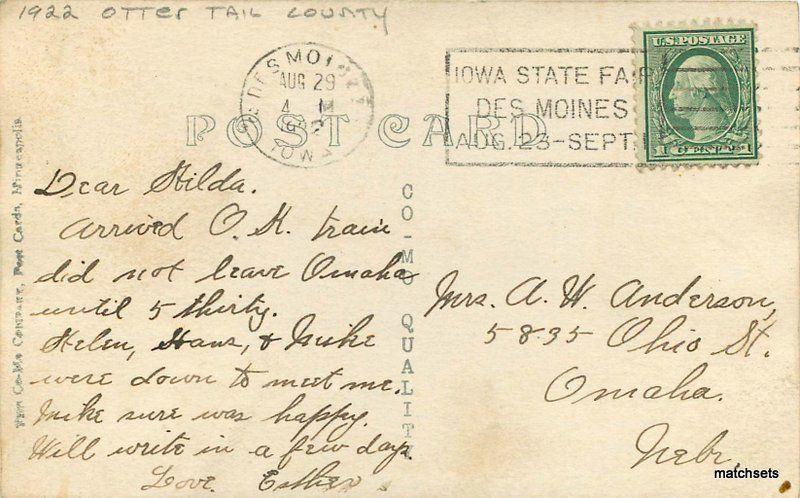 1922 OTTER TAIL COUNTY
DES MOINES
AUG 29
4 M
IOWA
IOWA STATE FAIR
DES MOINES
AUG. 23-SEPT. 1
U.S. POSTAGE
1 1
POST CARD
Dear Hilda.
Arrived O.K. train
did not leave Omaha
until 5 thirty.
Helen, Hans, & Mike
were down to meet me.
Mike sure was happy.
Will write in a few days.
Love. Esther
CO-MO QUALITY
Mrs. A. W. Anderson,
5835 Ohio St.
Omaha.
Nebr.
Co-Mo Company, Post Cards, Minneapolis.
matchsets